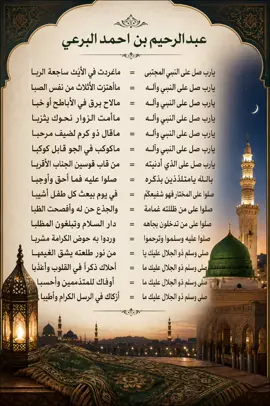 عبدالرحيم بن احمد البرعي
يارب صل على النبي المجتبى = ماغردت في الأيك ساجعة الربا
يارب صل على النبي وآلــه = ماأهتزت الأثلاث من نفس الصبا
يارب صل على النبي وآلــه = مالاح برق في الأباطح أو خبا
يارب صل على النبي وآلــه = ماأمت الزوار نحوك يثربا
يارب صل على النبي وآلــه = ماقال ذو كرم لضيف مرحبا
يارب صل على النبي وآلــه = ماكوكب في الجو قابل كوكبا
يارب صل على الذي أدنيته = من قاب قوسين الجناب الأقربا
بالله يامتلذذين بذكره = صلوا عليه فما أحق وأوجبا
صلوا على المختار فهو شفيعكم = في يوم يبعث كل طفل أشيبا
صلوا على من ظللته غمامة = والجذع حن له وأفصحت الظبا
صلوا على من تدخلون بجاهه = دار السلام وتبلغون المطلبا
صلوا عليه وسلموا وترحموا = وردوا به حوض الكرامة مشربا
صلى وسلم ذو الجلال عليك يا = من نور طلعته يشق الغيهبا
صلى وسلم ذو الجلال عليك ما = أحلاك ذكراً في القلوب وأعذبا
صلى وسلم ذو الجلال عليك ما = أوفاك للمتذممين وأحسبا
صلى وسلم ذو الجلال عليك ما = أزكاك في الرسل الكرام وأطيبا